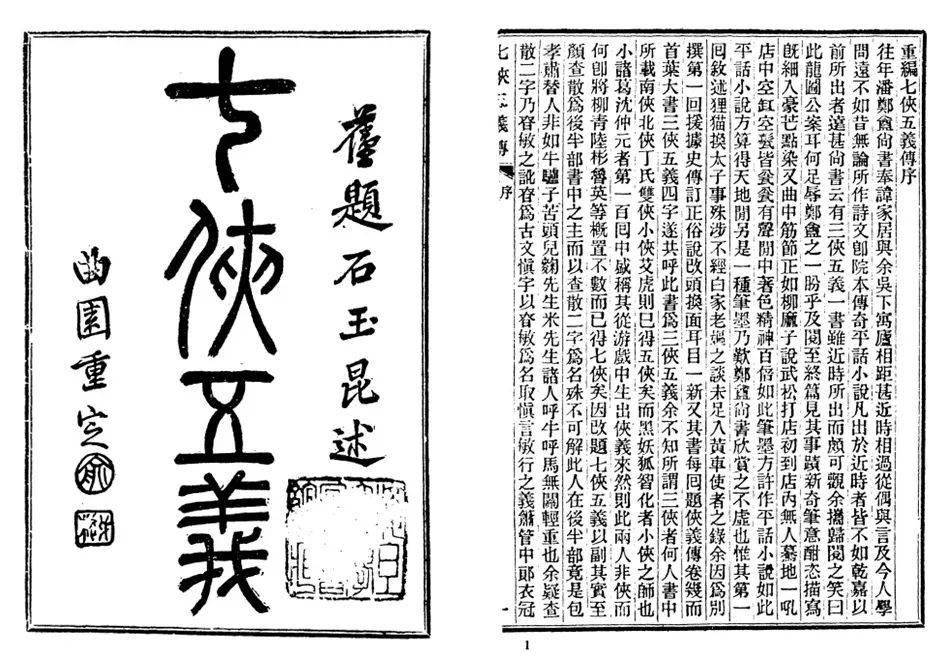 舊題石玉昆述
七俠五義
曲園重定
俞
重編七俠五義傳序
往年潘鄭盦尚書奉諱家居與余吳下寓廬相距甚近時相過從偶與言及今人學
問遠不如昔無論所作詩文卽院本傳奇平話小說凡出於近時者皆不如乾嘉以
前所出者遠甚尚書云有三俠五義一書雖近時所出而頗可觀余攜歸閱之笑曰
此龍圖公案耳何足辱鄭盦之一盼乎及閱至終篇見其事蹟新奇筆意酣恣描寫
旣細入豪芒點染又曲中筋節正如柳麻子說武松打店初到店內無人驀地一吼
店中空缸空甏皆瓮瓮有聲閒中著色精神百倍如此筆墨方許作平話小說如此
平話小說方算得天地閒另是一種筆墨乃歎鄭盦尚書欣賞之不虛也惟其第一
回敘述狸猫換太子事殊涉不經白家老嫗之談未足入黃車使者之錄余因爲別
撰第一回援據史傳訂正俗說改頭換面耳目一新又其書每回題俠義傳卷幾而
首葉大書三俠五義四字遂共呼此書爲三俠五義余不知所謂三俠者何人書中
所載南俠北俠丁氏雙俠小俠艾虎則已得五俠矣而黑妖狐智化者小俠之師也
小諸葛沈仲元者第一百回中盛稱其從游戲中生出俠義來然則此兩人非俠而
何卽將柳青陸彬魯英等概置不數而已得七俠矣因改題七俠五義以副其實至
顏查散爲後半部書中之主而以查散二字爲名殊不可解此人在後半部竟是包
孝肅替人非如牛驢子苦頭兒麴先生米先生諸人呼牛呼馬無關輕重也余疑查
散二字乃昚敏之訛昚爲古文愼字以昚敏爲名取愼言敏行之義蕭管中郎衣冠
七俠五義傳 序 一
1